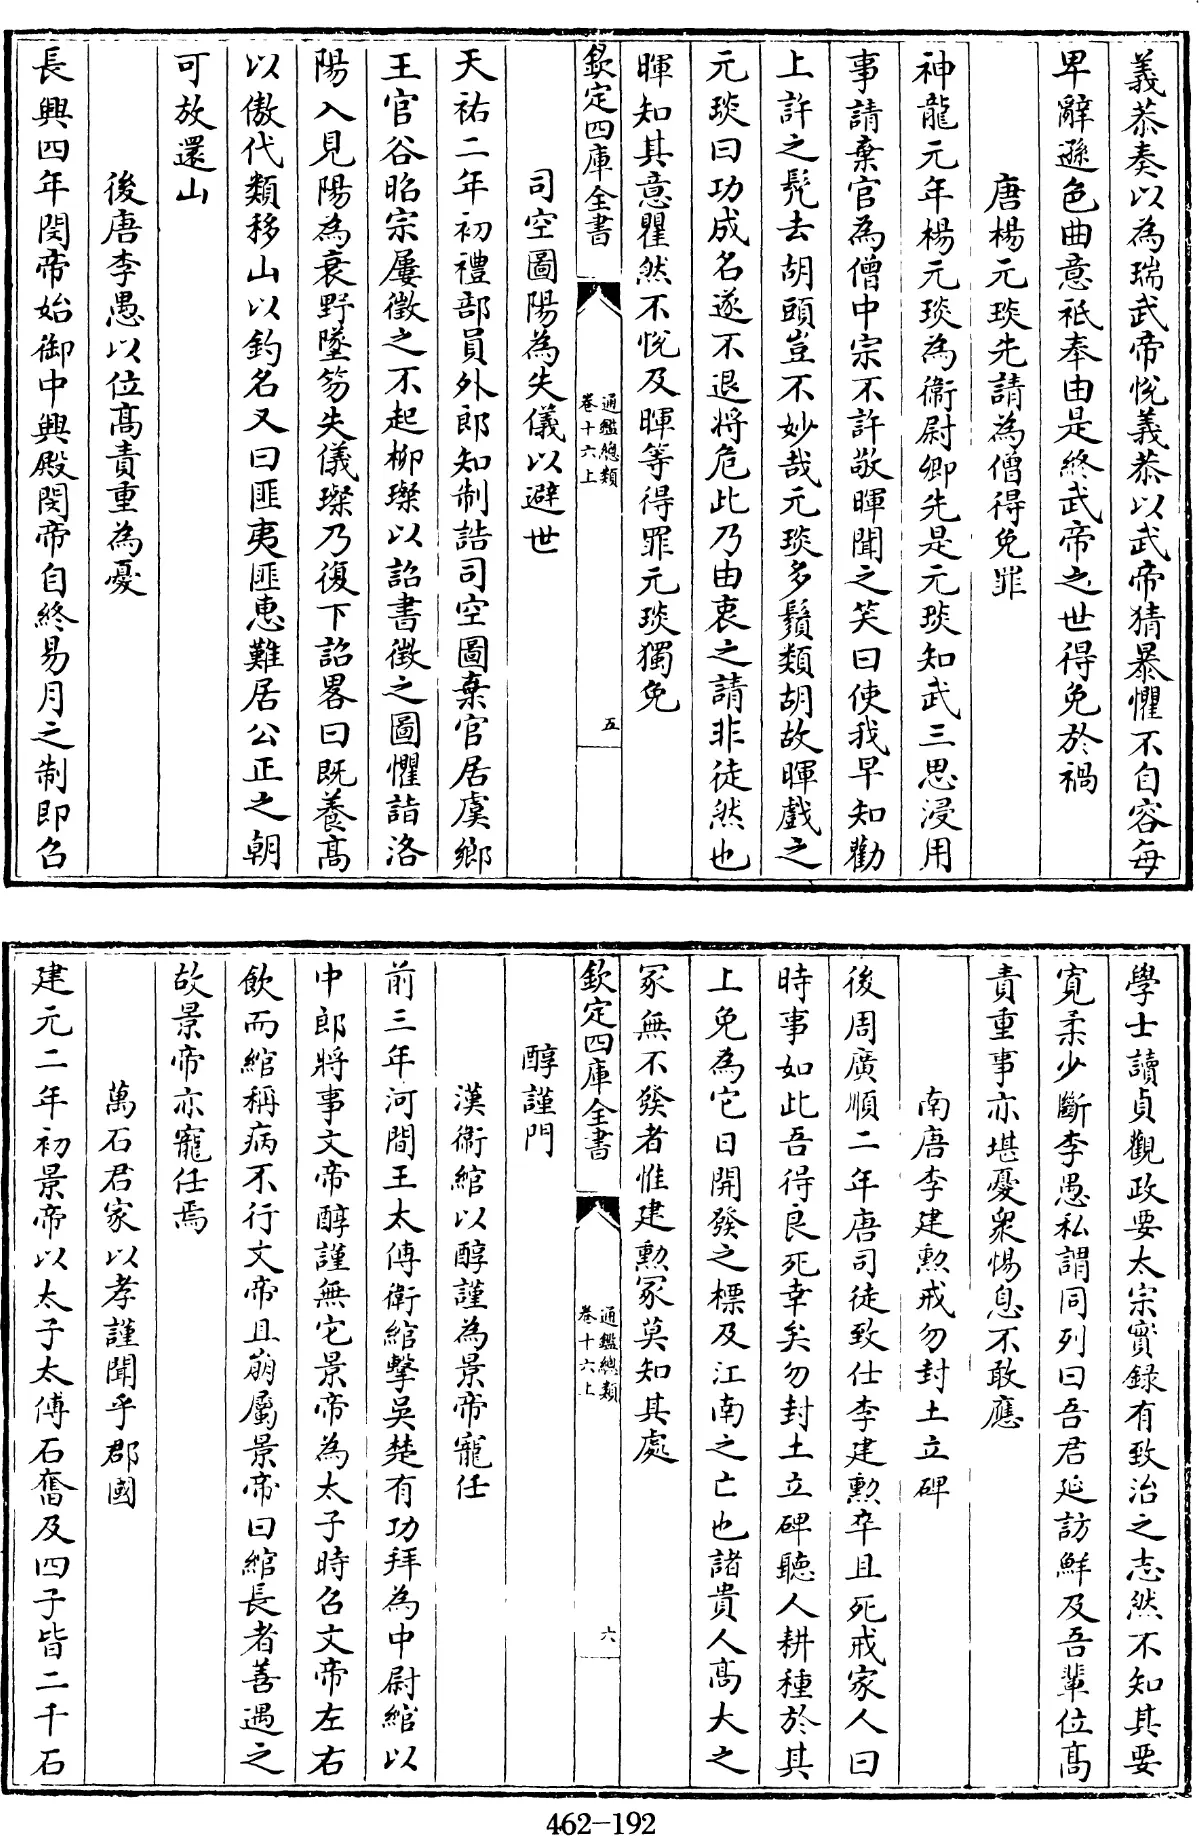 義恭奏以為瑞武帝悅義恭以武帝猜暴懼不自容每
卑辭遜色曲意祗奉由是終武帝之世得免於禍
唐楊元琰先請為僧得免罪
神龍元年楊元琰為衞尉卿先是元琰知武三思浸用
事請棄官為僧中宗不許敬暉聞之笑曰使我早知勸
上許之髠去胡頭豈不妙哉元琰多鬚類胡故暉戲之
元琰曰功成名遂不退將危此乃由衷之請非徒然也
暉知其意瞿然不悅及暉等得罪元琰獨免
欽定四庫全書
通鑑總類
卷十六上
五
司空圖陽為失儀以避世
天祐二年初禮部員外郎知制誥司空圖棄官居虞鄉
王官谷昭宗屢徵之不起柳璨以詔書徵之圖懼詣洛
陽入見陽為衰野墜笏失儀璨乃復下詔畧曰既養高
以傲代類移山以釣名又曰匪夷匪惠難居公正之朝
可放還山
後唐李愚以位高責重為憂
長興四年閔帝始御中興殿閔帝自終易月之制即召
學士讀貞觀政要太宗實録有致治之志然不知其要
寛柔少斷李愚私謂同列曰吾君延訪鮮及吾輩位高
責重事亦堪憂衆惕息不敢應
南唐李建勲戒勿封土立碑
後周廣順二年唐司徒致仕李建勲卒且死戒家人曰
時事如此吾得良死幸矣勿封土立碑聽人耕種於其
上免為它日開發之標及江南之亡也諸貴人高大之
冢無不發者惟建勲冢莫知其處
欽定四庫全書
通鑑總類
卷十六上
六
醇謹門
漢衞綰以醇謹為景帝寵任
前三年河間王太傅衛綰擊吳楚有功拜為中尉綰以
中郎將事文帝醇謹無它景帝為太子時召文帝左右
飲而綰稱病不行文帝且崩屬景帝曰綰長者善遇之
故景帝亦寵任焉
萬石君家以孝謹聞乎郡國
建元二年初景帝以太子太傅石奮及四子皆二千石
462-192